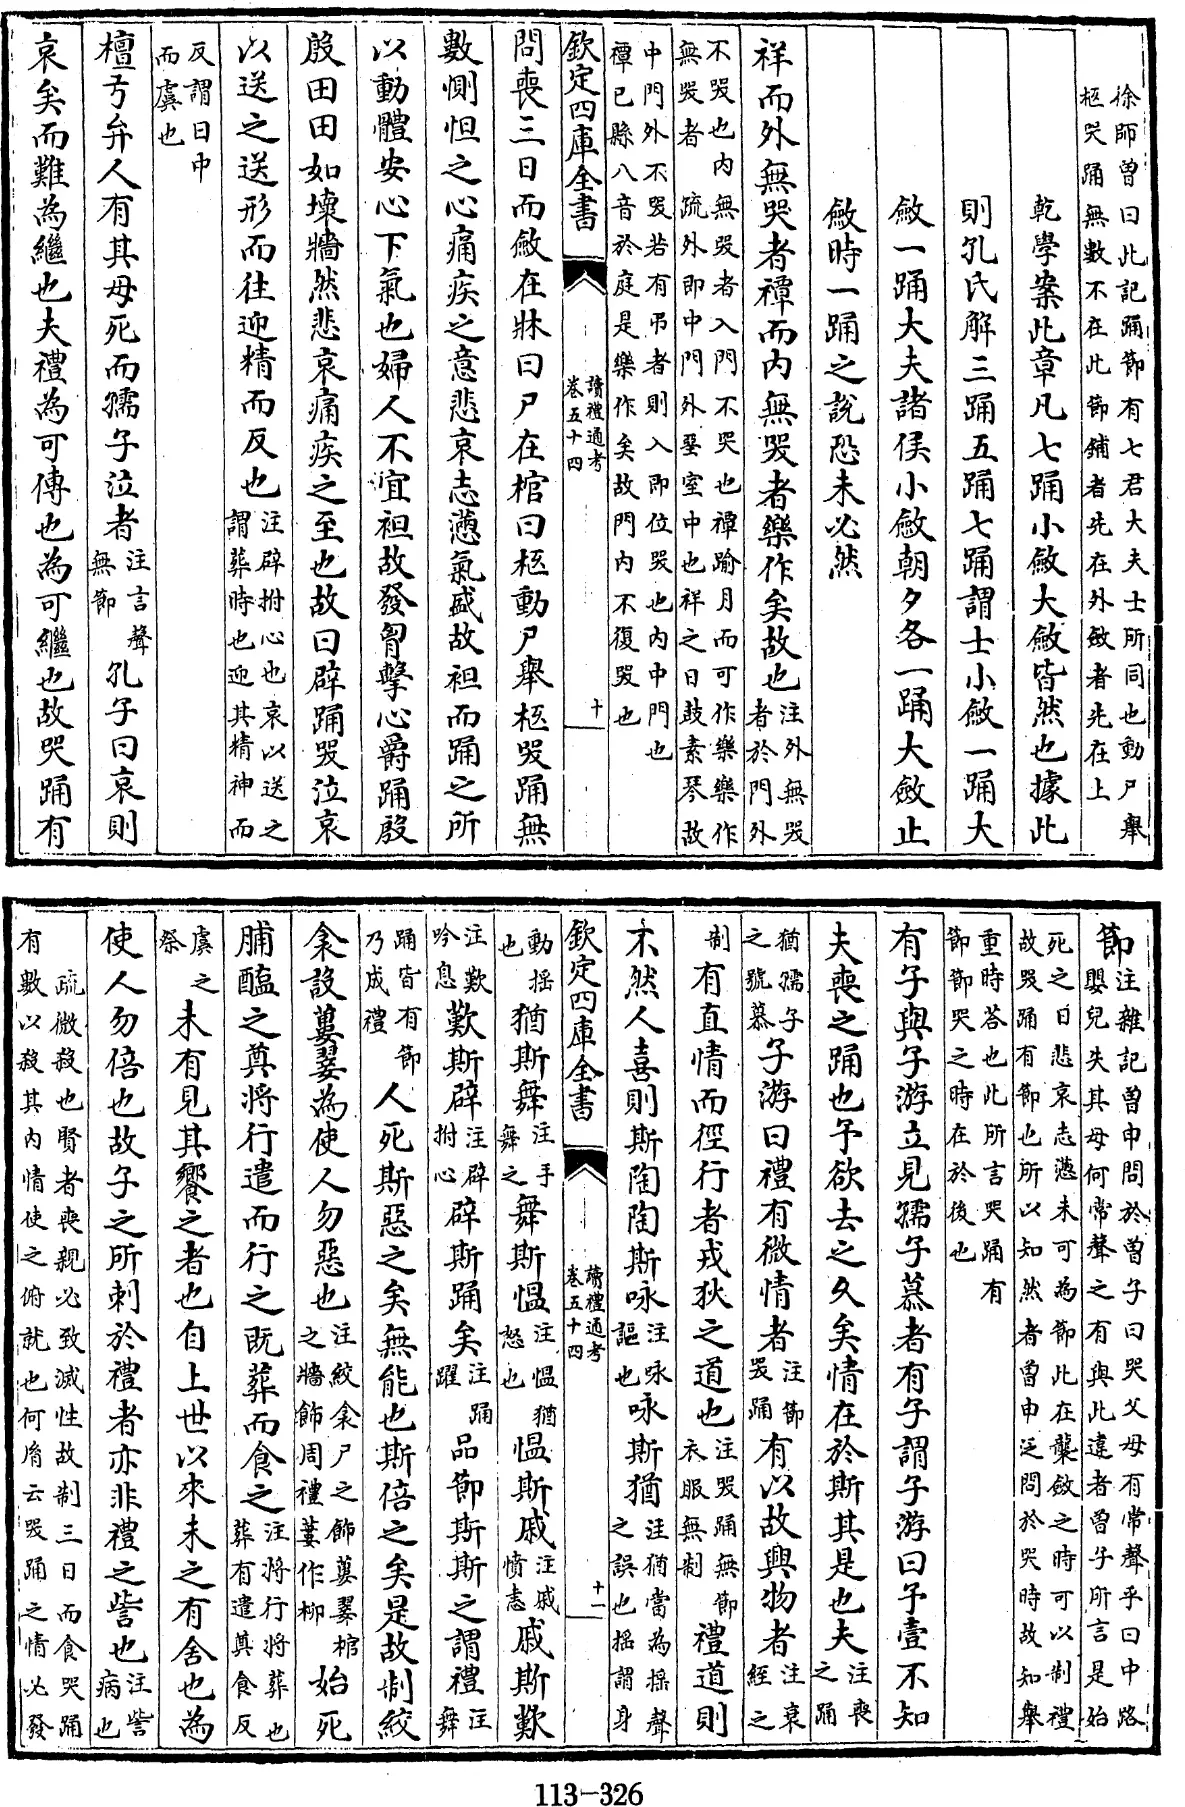 徐師曾曰此記踊節有七君大夫士所同也動尸舉
柩哭踊無數不在此節鋪者先在外斂者先在上
乾學案此章凡七踊小斂大斂皆然也據此
則孔氏解三踊五踊七踊謂士小斂一踊大
斂一踊大夫諸侯小斂朝夕各一踊大斂止
斂時一踊之說恐未必然
祥而外無哭者禫而内無哭者樂作矣故也注外無哭者於門外
不哭也内無哭者入門不哭也禫踰月而可作樂樂作
無哭者 疏外即中門外堊室中也祥之日鼓素琴故
中門外不哭若有弔者則入即位哭也内中門也
禫已縣八音於庭是樂作矣故門内不復哭也
欽定四庫全書 讀禮通考 卷五十四 十
問喪三日而斂在牀曰尸在棺曰柩動尸舉柩哭踊無
數惻怛之心痛疾之意悲哀志懣氣盛故袒而踊之所
以動體安心下氣也婦人不宜袒故發胷擊心爵踊殷
殷田田如壞牆然悲哀痛疾之至也故曰辟踊哭泣哀
以送之送形而往迎精而反也注辟拊心也哀以送之謂葬時也迎其精神而
反謂日中
而虞也
檀弓弁人有其母死而孺子泣者注言聲無節孔子曰哀則
哀矣而難為繼也夫禮為可傳也為可繼也故哭踊有
節注雜記曽申問於曽子曰哭父母有常聲乎曰中路
嬰兒失其母何常聲之有與此違者曽子所言是始
死之日悲哀志懣未可為節此在襲斂之時可以制禮
故哭踊有節也所以知然者曽申泛問於哭時故知舉
重時荅也此所言哭踊有
節節哭之時在於後也
有子與子游立見孺子慕者有子謂子游曰予壹不知
夫喪之踊也予欲去之久矣情在於斯其是也夫注喪之踊
猶孺子之號慕子游曰禮有微情者注節哭踊有以故興物者注衰絰之
制有直情而徑行者戎狄之道也注哭踊無節衣服無制禮道則
不然人喜則斯陶陶斯咏注咏謳也咏斯猶注猶當為揺聲之誤也揺謂身
動揺也猶斯舞注手舞之舞斯愠注愠猶怒也愠斯戚注戚憤恚戚斯歎
注歎吟息歎斯辟注辟拊心辟斯踊矣注踊躍品節斯斯之謂禮注舞
踊皆有節乃成禮人死斯惡之矣無能也斯倍之矣是故制絞
衾設蔞翣為使人勿惡也注絞衾尸之飾蔞翣棺之牆飾周禮蔞作柳始死
脯醢之奠將行遣而行之既葬而食之注將行將葬也葬有遣奠食反
虞之祭未有見其饗之者也自上世以來未之有舍也為
使人勿倍也故子之所刺於禮者亦非禮之訾也注訾病也
疏微殺也賢者喪親必致滅性故制三日而食哭踊
有數以殺其内情使之俯就也何𦙍云哭踊之情必發
113-326